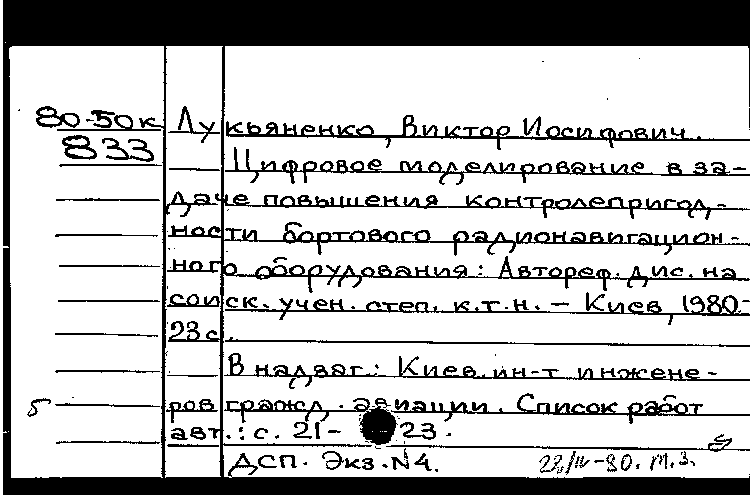 80-50к
833
Лукьяненко, Виктор Иосифович.
Цифровое моделирование в за-
даче повышения контролепригод-
ности бортового радионавигацион-
ного оборудования: Автореф. дис. на
соиск. учен. степ. к.т.н. – Киев, 1980-
23с.
В надзаг.: Киев. ин-т инжене-
ров гражд. авиации. Список работ
авт.: с. 21-23.
ДСП. Экз. N4.
Б